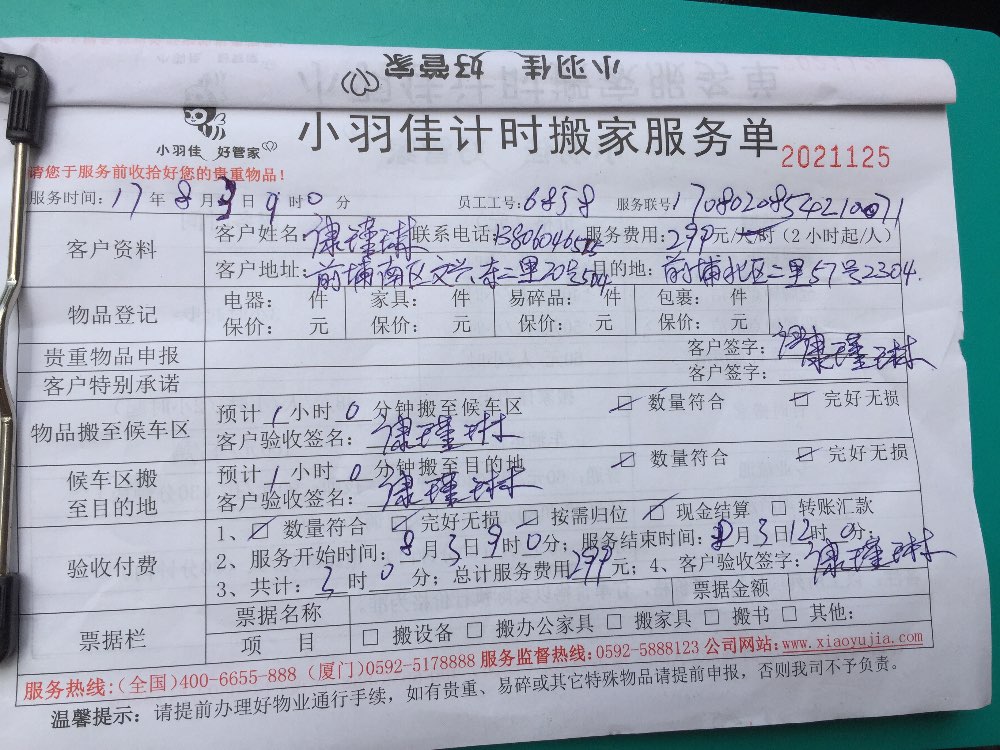 小羽佳 好管家
小羽佳 好管家
小羽佳计时搬家服务单
2021125
请您于服务前收拾好您的贵重物品！
服务时间：17年8月3日9时0分 员工工号：6858 服务联号
客户资料 客户姓名：康瑾琳 联系电话 服务费用：299元/人/时（2小时起/人）
客户地址：前埔南区文兴东二里20号504 目的地：前埔北区二里57号2304.
物品登记 电器： 件 家具： 件 易碎品： 件 包裹： 件
保价： 元 保价： 元 保价： 元 保价： 元
贵重物品申报 客户签字：康瑾琳
客户特别承诺 客户签字：
物品搬至候车区 预计1小时0分钟搬至候车区 ☑ 数量符合 ☑ 完好无损
客户验收签名：康瑾琳
候车区搬至目的地 预计1小时0分钟搬至目的地 ☑ 数量符合 ☑ 完好无损
客户验收签名：康瑾琳
验收付费 1、☑ 数量符合 ☑ 完好无损 ☑ 按需归位 ☑ 现金结算 □ 转账汇款
2、服务开始时间：8月3日9时0分；服务结束时间：8月3日12时0分；
3、共计：3时0分；总计服务费用299元；4、客户验收签字：康瑾琳
票据栏 票据名称 票据金额
项 目 □ 搬设备 □ 搬办公家具 □ 搬家具 □ 搬书 □ 其他：
服务热线：（全国）400-6655-888（厦门）0592-5178888 服务监督热线：0592-5888123 公司网站：www.xiaoyujia.com
温馨提示：请提前办理好物业通行手续，如有贵重、易碎或其它特殊物品请提前申报，否则我司不予负责。